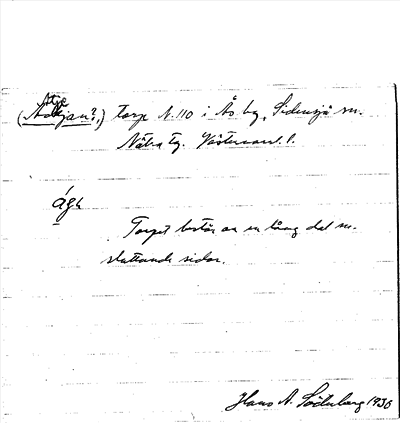 Åtje
(Aaltjan?,) Torp N.110 i Ås by, Sidensjö sn.
Nätra tg. Västernorrl. l.
ágh
Torpet består av en lång del m.
sluttande sidor.
Hans A. Söderberg 1936